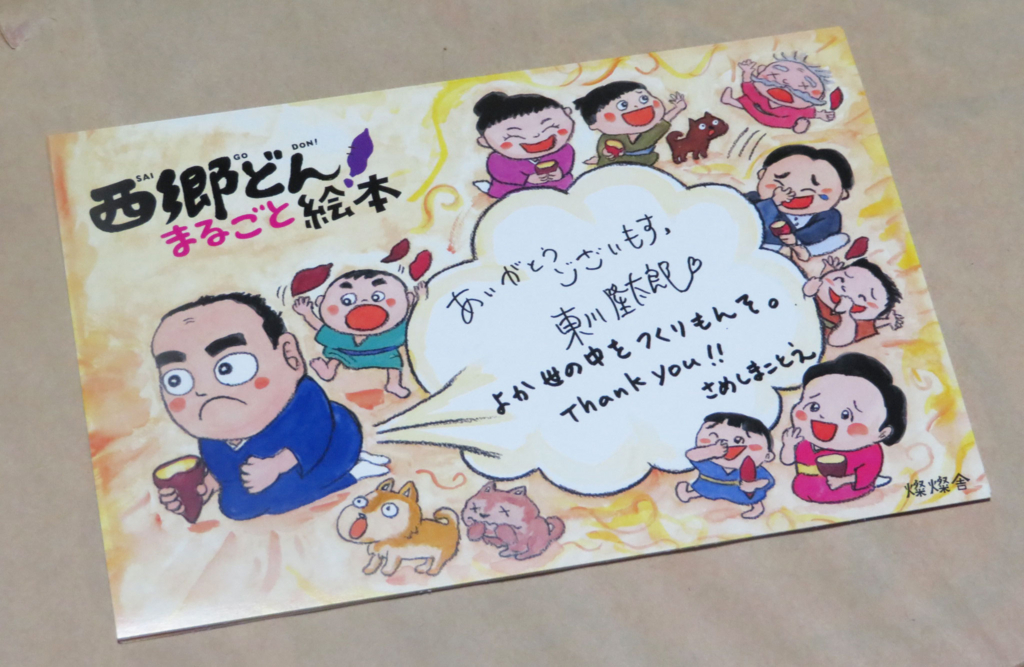 SAI GO DON!
西郷どん!
まるごと絵本
ありがとうございもす。
東川隆太郎
よか世の中をつくりもんそ。
Thank you!!
さめしまことえ
燦燦舎